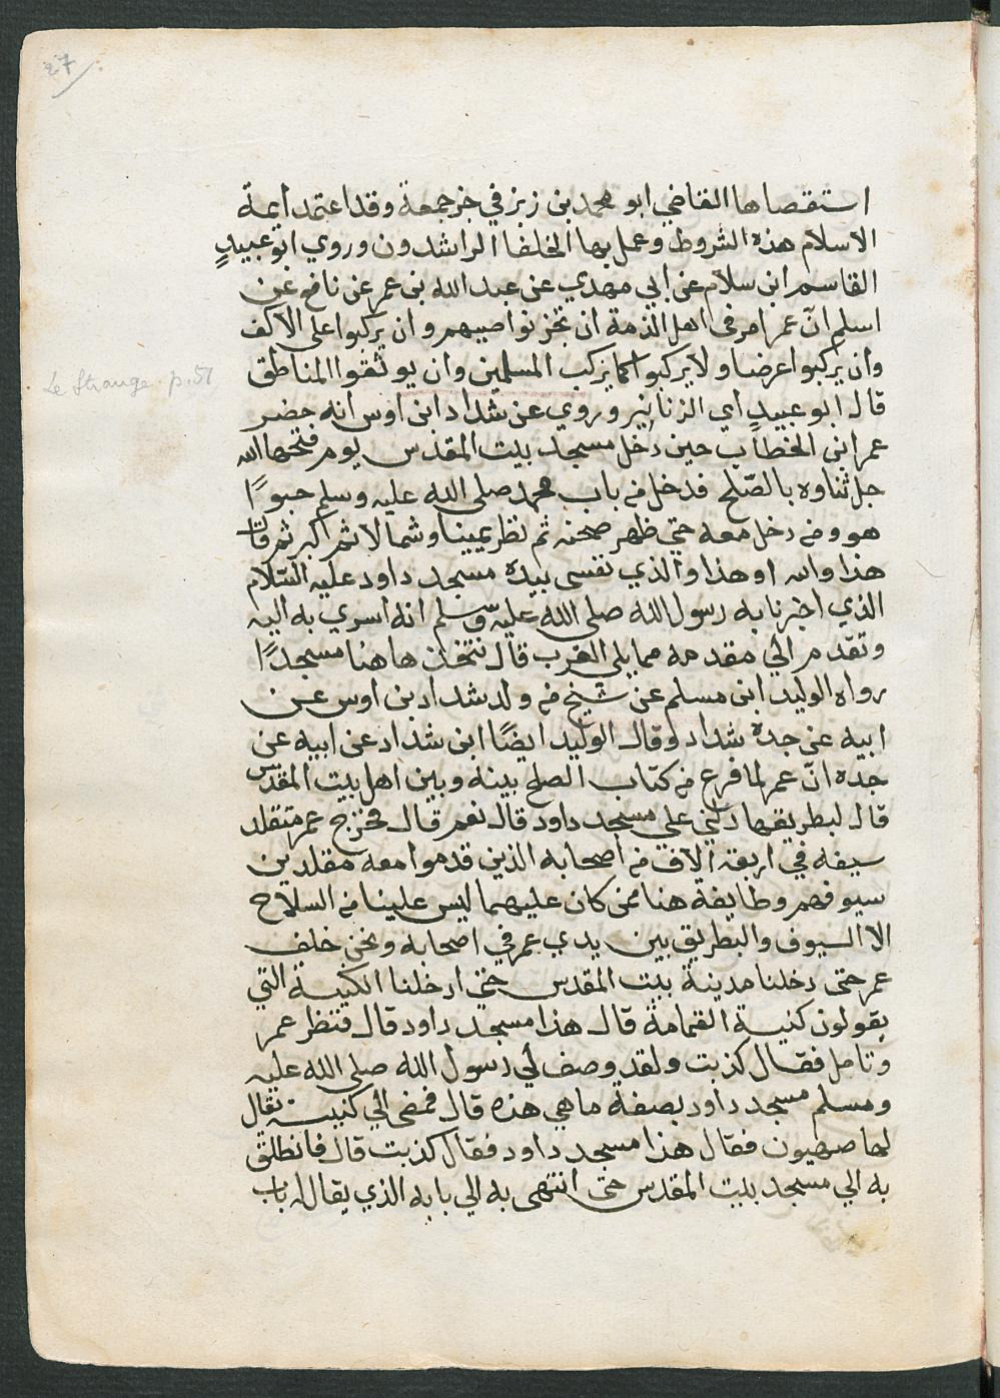 27
استقصاها القاضي ابو محمد بن زبر في جزجمعة وقد اعتمد ايمة
الاسلام هذه الشروط وعمل بها الخلفا الراشدون وروي ابو عبيدٍ
القاسم ابن سلام عن ابي مهدي عن عبد الله بن عمر عن نافع عن
اسلم انّ عمر امر في اهل الذمة ان تجز نواصيهم وان يركبوا على الاكف
وان يركبوا عرضا ولا يركبوا كما يركب المسلمين وان يوثقوا المناطق
Le Strange. p. 51
قال ابو عبيدٍ اي الزنانير وروي عن شداد ابن اوس انه حضر
عمر ابن الخطاب حين دخل مسجد بيت المقدس يوم فتحها الله
جل ثناوه بالصّلح فدخل من باب محمد صلى الله عليه وسلم حبوًا
هو ومن دخل معه حتي ظهر صحنه ثم نظر يمينا وشمالا ثم اكبر ثم قال
هذا والله او هذا والذي نفسي بيده مسجد داود عليه السّلام
الذي اخبرنا به رسول الله صلى الله عليه وسلم انه اسري به اليه
وتقدم الي مقدمه مما يلي الغرب قال نتخذ هاهنا مسجدًا
رواه الوليد ابن مسلم عن شيخ من ولد شداد بن اوس عن
ابيه عن جده شداد وقال الوليد ايضًا ابن شداد عن ابيه عن
جده انّ عمر لما فرغ من كتاب الصلح بينه وبين اهل بيت المقدس
قال لبطريقها دلني علي مسجد داود قال نعم قال فخرج عمر متقلد
سيفه في اربعة الاف من اصحابه الذين قدموا معه مقلدين
سيوفهم وطايفة هنا ممن كان عليهما ليس علينا من السلاح
الا السيوف والبطريق بين يدي عمر في اصحابه ونحن خلف
عمر حتى دخلنا مدينة بيت المقدس حتي ادخلنا الكنيسة التي
يقولون كنيسة القمامة قال هذا مسجد داود قال فنظر عمر
وتامل فقال كذبت ولقد وصف لي رسول الله صلى الله عليه
وسلم مسجد داود بصفة ما هي هذه قال فمضى الي كنيسة يقال
لها صهيون فقال هذا مسجد داود فقال كذبت قال فانطلق
به الي مسجد بيت المقدس حتى انتهى به الي بابه الذي يقال له باب